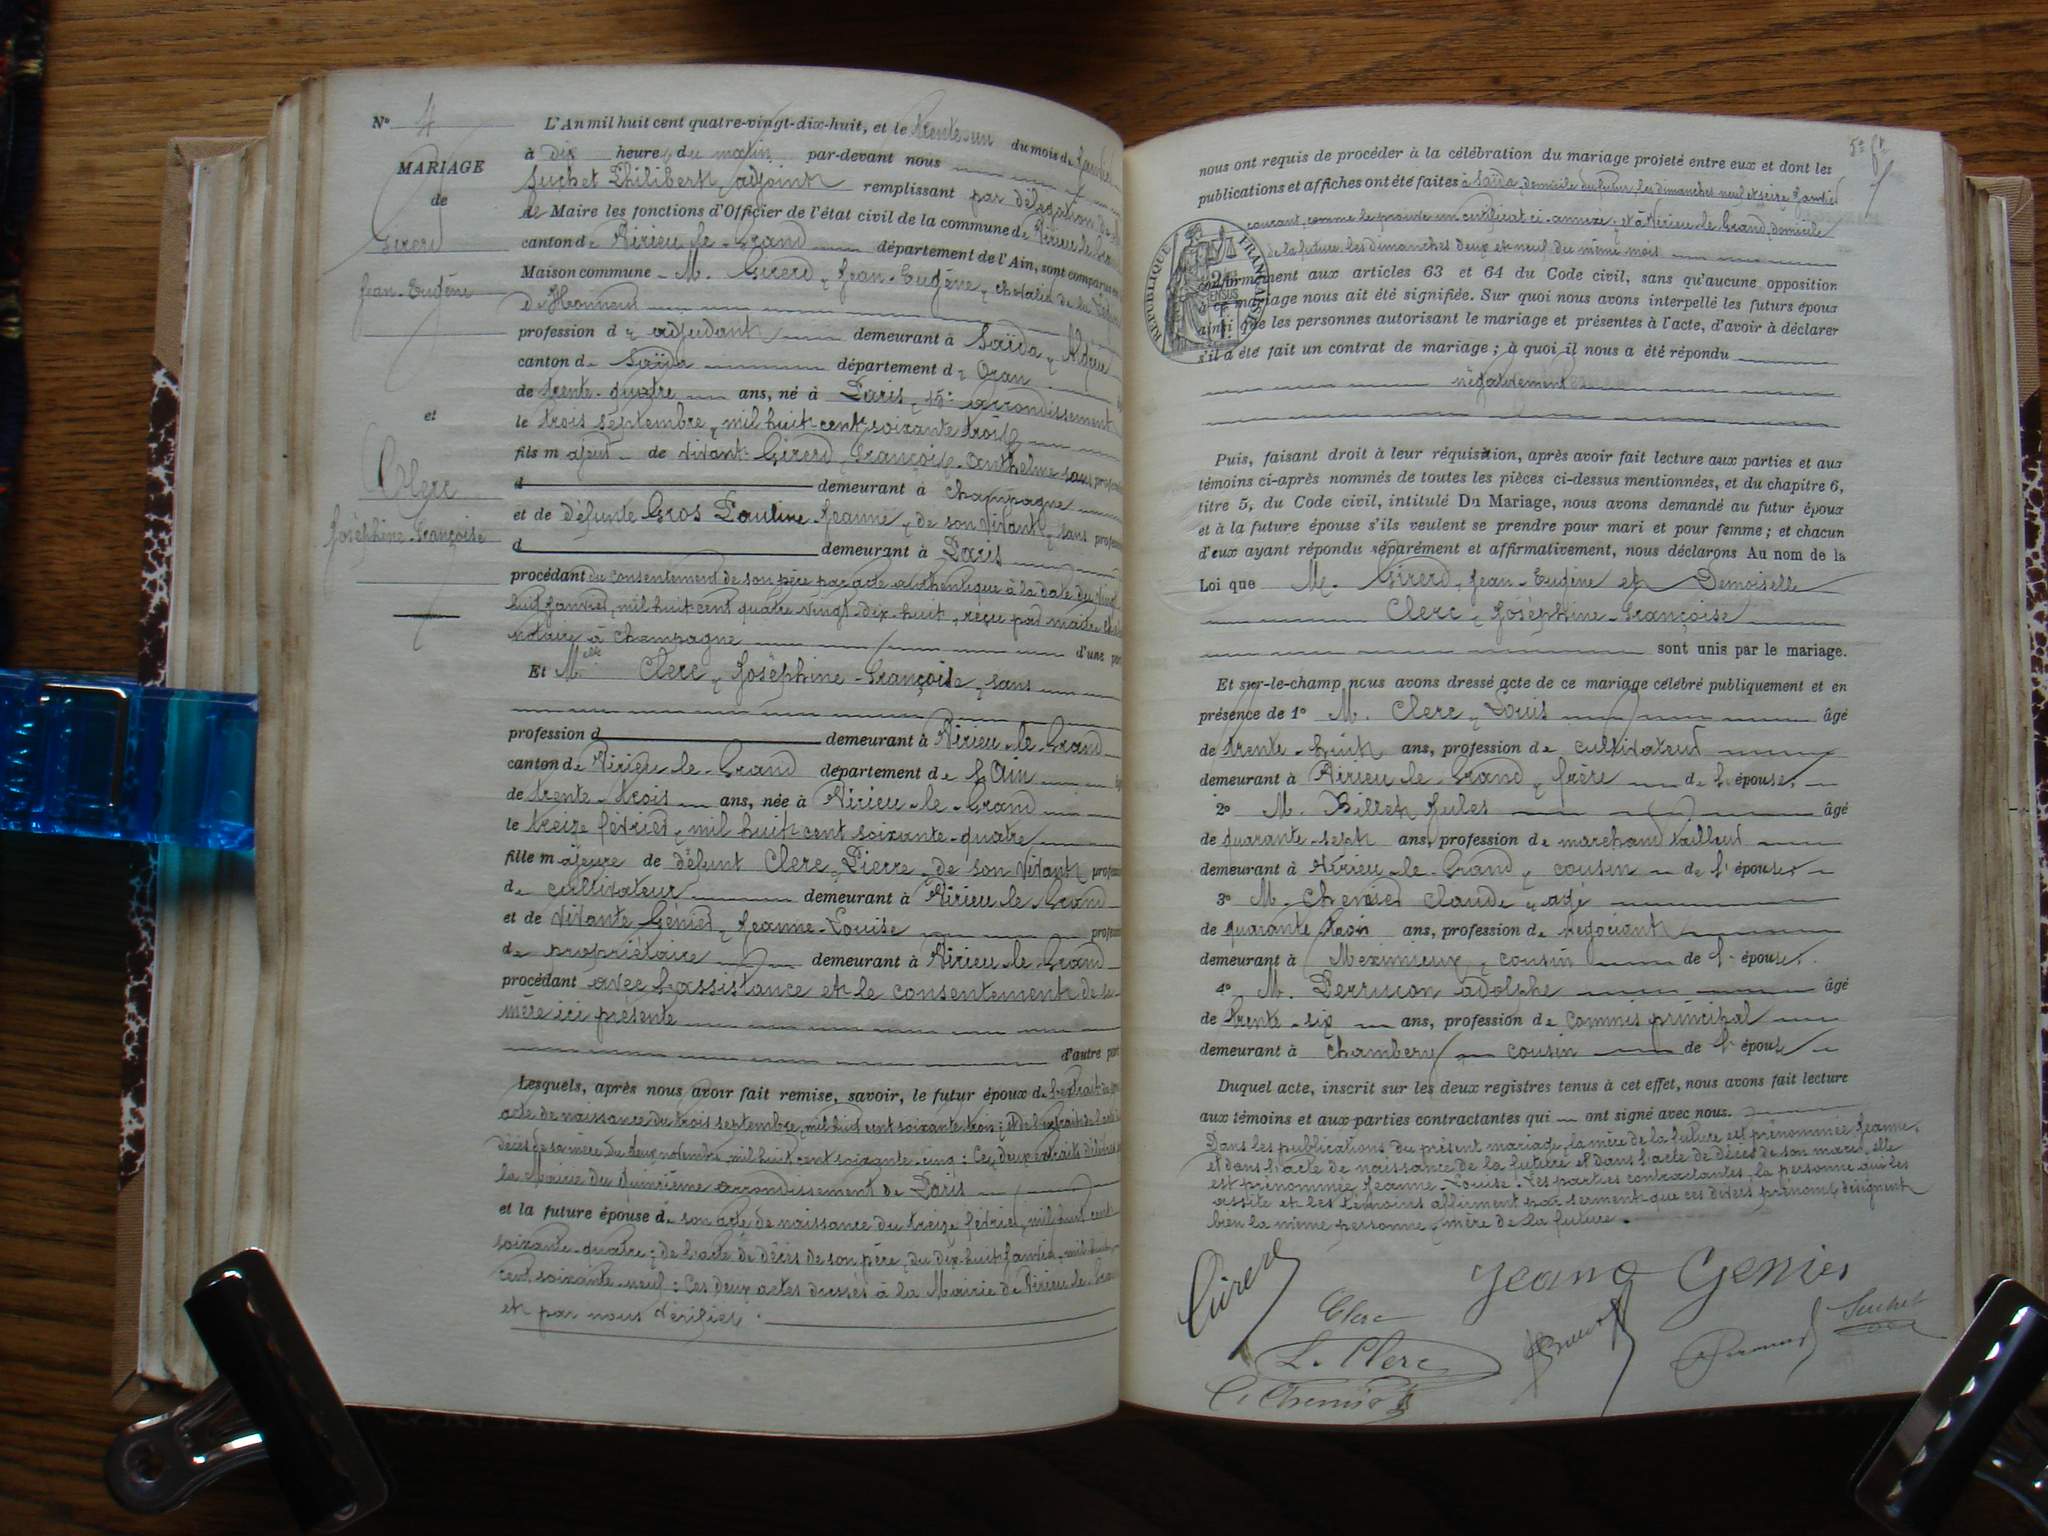 N° 4
MARIAGE
de
Girerd
Jean-Eugène
et
Clerc
Joséphine Françoise
L'An mil huit cent quatre-vingt-dix-huit, et le trente-un du mois de Janvier
à dix heures du matin par-devant nous
Suchet Philibert, adjoint remplissant par délégation de
de Maire les fonctions d'Officier de l'état civil de la commune de Virieu-le-Grand
canton de Virieu-le-Grand département de l'Ain, sont comparus en
Maison commune - M. Girerd, Jean-Eugène, chevalier de la Légion
d'Honneur
profession d' adjudant demeurant à Saïda, Algérie
canton de Saïda département d' Oran
de trente-quatre ans, né à Paris, 15e arrondissement
le trois septembre, mil huit-cent soixante trois
fils majeur de vivant Girerd, François-Anthelme sans profession
d demeurant à Champagne
et de défunte Gros Pauline-Jeanne, de son vivant, sans profession
d demeurant à Paris
procédant du consentement de son père par acte authentique à la date du vingt
huit Janvier, mil huit cent quatre-vingt-dix-huit, reçu par maître
notaire à Champagne d'une part
Et Melle Clerc, Joséphine-Françoise, sans
profession d demeurant à Virieu-le-Grand
canton de Virieu-le-Grand département de l'Ain
de trente-trois ans, née à Virieu-le-Grand
le treize février, mil huit cent soixante-quatre
fille majeure de défunt Clerc, Pierre, de son vivant profession
de cultivateur demeurant à Virieu-le-Grand
et de vivante Génier, Jeanne-Louise profession
de propriétaire demeurant à Virieu-le-Grand
procédant avec l'assistance et le consentement de sa
mère ici présente
d'autre part
Lesquels, après nous avoir fait remise, savoir, le futur époux de l'extrait de son
acte de naissance du trois septembre, mil huit cent soixante trois; et de l'extrait de l'acte de
décès de sa mère du deux novembre, mil huit cent soixante-cinq: Ces deux extraits délivrés à
la Mairie du quinzième arrondissement de Paris
et la future épouse de son acte de naissance du treize février, mil huit cent
soixante-quatre; de l'acte de décès de son père, du dix-huit Janvier, mil huit
cent soixante-neuf: Ces deux actes dressés à la Mairie de Virieu-le-Grand
et par nous vérifiés.
nous ont requis de procéder à la célébration du mariage projeté entre eux et dont les
publications et affiches ont été faites à Saïda, domicile du futur, les dimanches neuf et seize Janvier
courant, comme le prouve un certificat ci-annexé; et à Virieu-le-Grand, domicile
de la future les dimanches deux et neuf du même mois
conformément aux articles 63 et 64 du Code civil, sans qu'aucune opposition
à ce mariage nous ait été signifiée. Sur quoi nous avons interpellé les futurs époux
ainsi que les personnes autorisant le mariage et présentes à l'acte, d'avoir à déclarer
s'il a été fait un contrat de mariage; à quoi il nous a été répondu
négativement
RÉPUBLIQUE FRANÇAISE
Puis, faisant droit à leur réquisition, après avoir fait lecture aux parties et aux
témoins ci-après nommés de toutes les pièces ci-dessus mentionnées, et du chapitre 6,
titre 5, du Code civil, intitulé Du Mariage, nous avons demandé au futur époux
et à la future épouse s'ils veulent se prendre pour mari et pour femme; et chacun
d'eux ayant répondu séparément et affirmativement, nous déclarons Au nom de la
Loi que M. Girerd, Jean-Eugène et Demoiselle
Clerc, Joséphine-Françoise
sont unis par le mariage.
Et sur-le-champ nous avons dressé acte de ce mariage célébré publiquement et en
présence de 1° M. Clerc, Louis âgé
de trente-huit ans, profession de cultivateur
demeurant à Virieu-le-Grand, frère de l'épouse,
2° M. Billet Jules âgé
de quarante-sept ans, profession de marchand tailleur
demeurant à Virieu-le-Grand, cousin de l'épouse,
3° M. Claude, âgé
de quarante trois ans, profession de négociant
demeurant à Meximieux, cousin de l'épouse.
4° M. Perrucon Adolphe âgé
de trente-six ans, profession de commis principal
demeurant à Chambéry cousin de l'épouse
Duquel acte, inscrit sur les deux registres tenus à cet effet, nous avons fait lecture
aux témoins et aux parties contractantes qui ont signé avec nous.
Dans les publications du présent mariage, la mère de la future est prénommée Jeanne,
et dans l'acte de naissance de la future et dans l'acte de décès de son mari, elle
est prénommée Jeanne-Louise. Les parties contractantes, la personne qui les
assite et les témoins affirment par serment que ces divers prénoms désignent
bien la même personne, mère de la future.
Girerd
Jeane Genier
Clerc
Suchet
L. Clerc